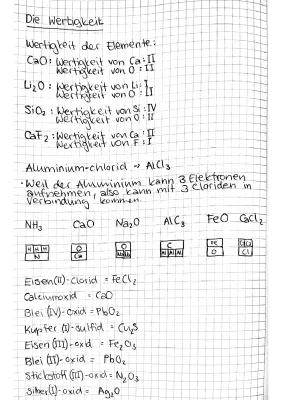 Die Wertigkeit
Wertigkeit der Elemente:
CaO: Wertigkeit von Ca: II
Wertigkeit von O: II
Li₂O: Wertigkeit von Li: I
Wertigkeit von O: II
SiO₂: Wertigkeit von Si: IV
Wertigkeit von O: II
CaF₂: Wertigkeit von Ca: II
Wertigkeit von F: I
Aluminium-chlorid → AlCl₃
• Weil der Aluminium kann 3 Elektronen
aufnehmen, also kann mit 3 Cloriden in
Verbindung kommen.
NH₃ CaO Na₂O AlC₃ FeO CaCl₂
H H H O O C Fe Cl Cl
N Ca Al Al Al O
Eisen(II)-Clorid = FeCl₂
Calciumoxid = CaO
Blei (IV)-oxid = PbO₂
Kupfer (I)-sulfid = Cu₂S
Eisen (III)-oxid = Fe₂O₃
Blei (II)-oxid = PbO₂
Stickstoff (III)-oxid = N₂O₃
Silber(I)-oxid = Ag₂O